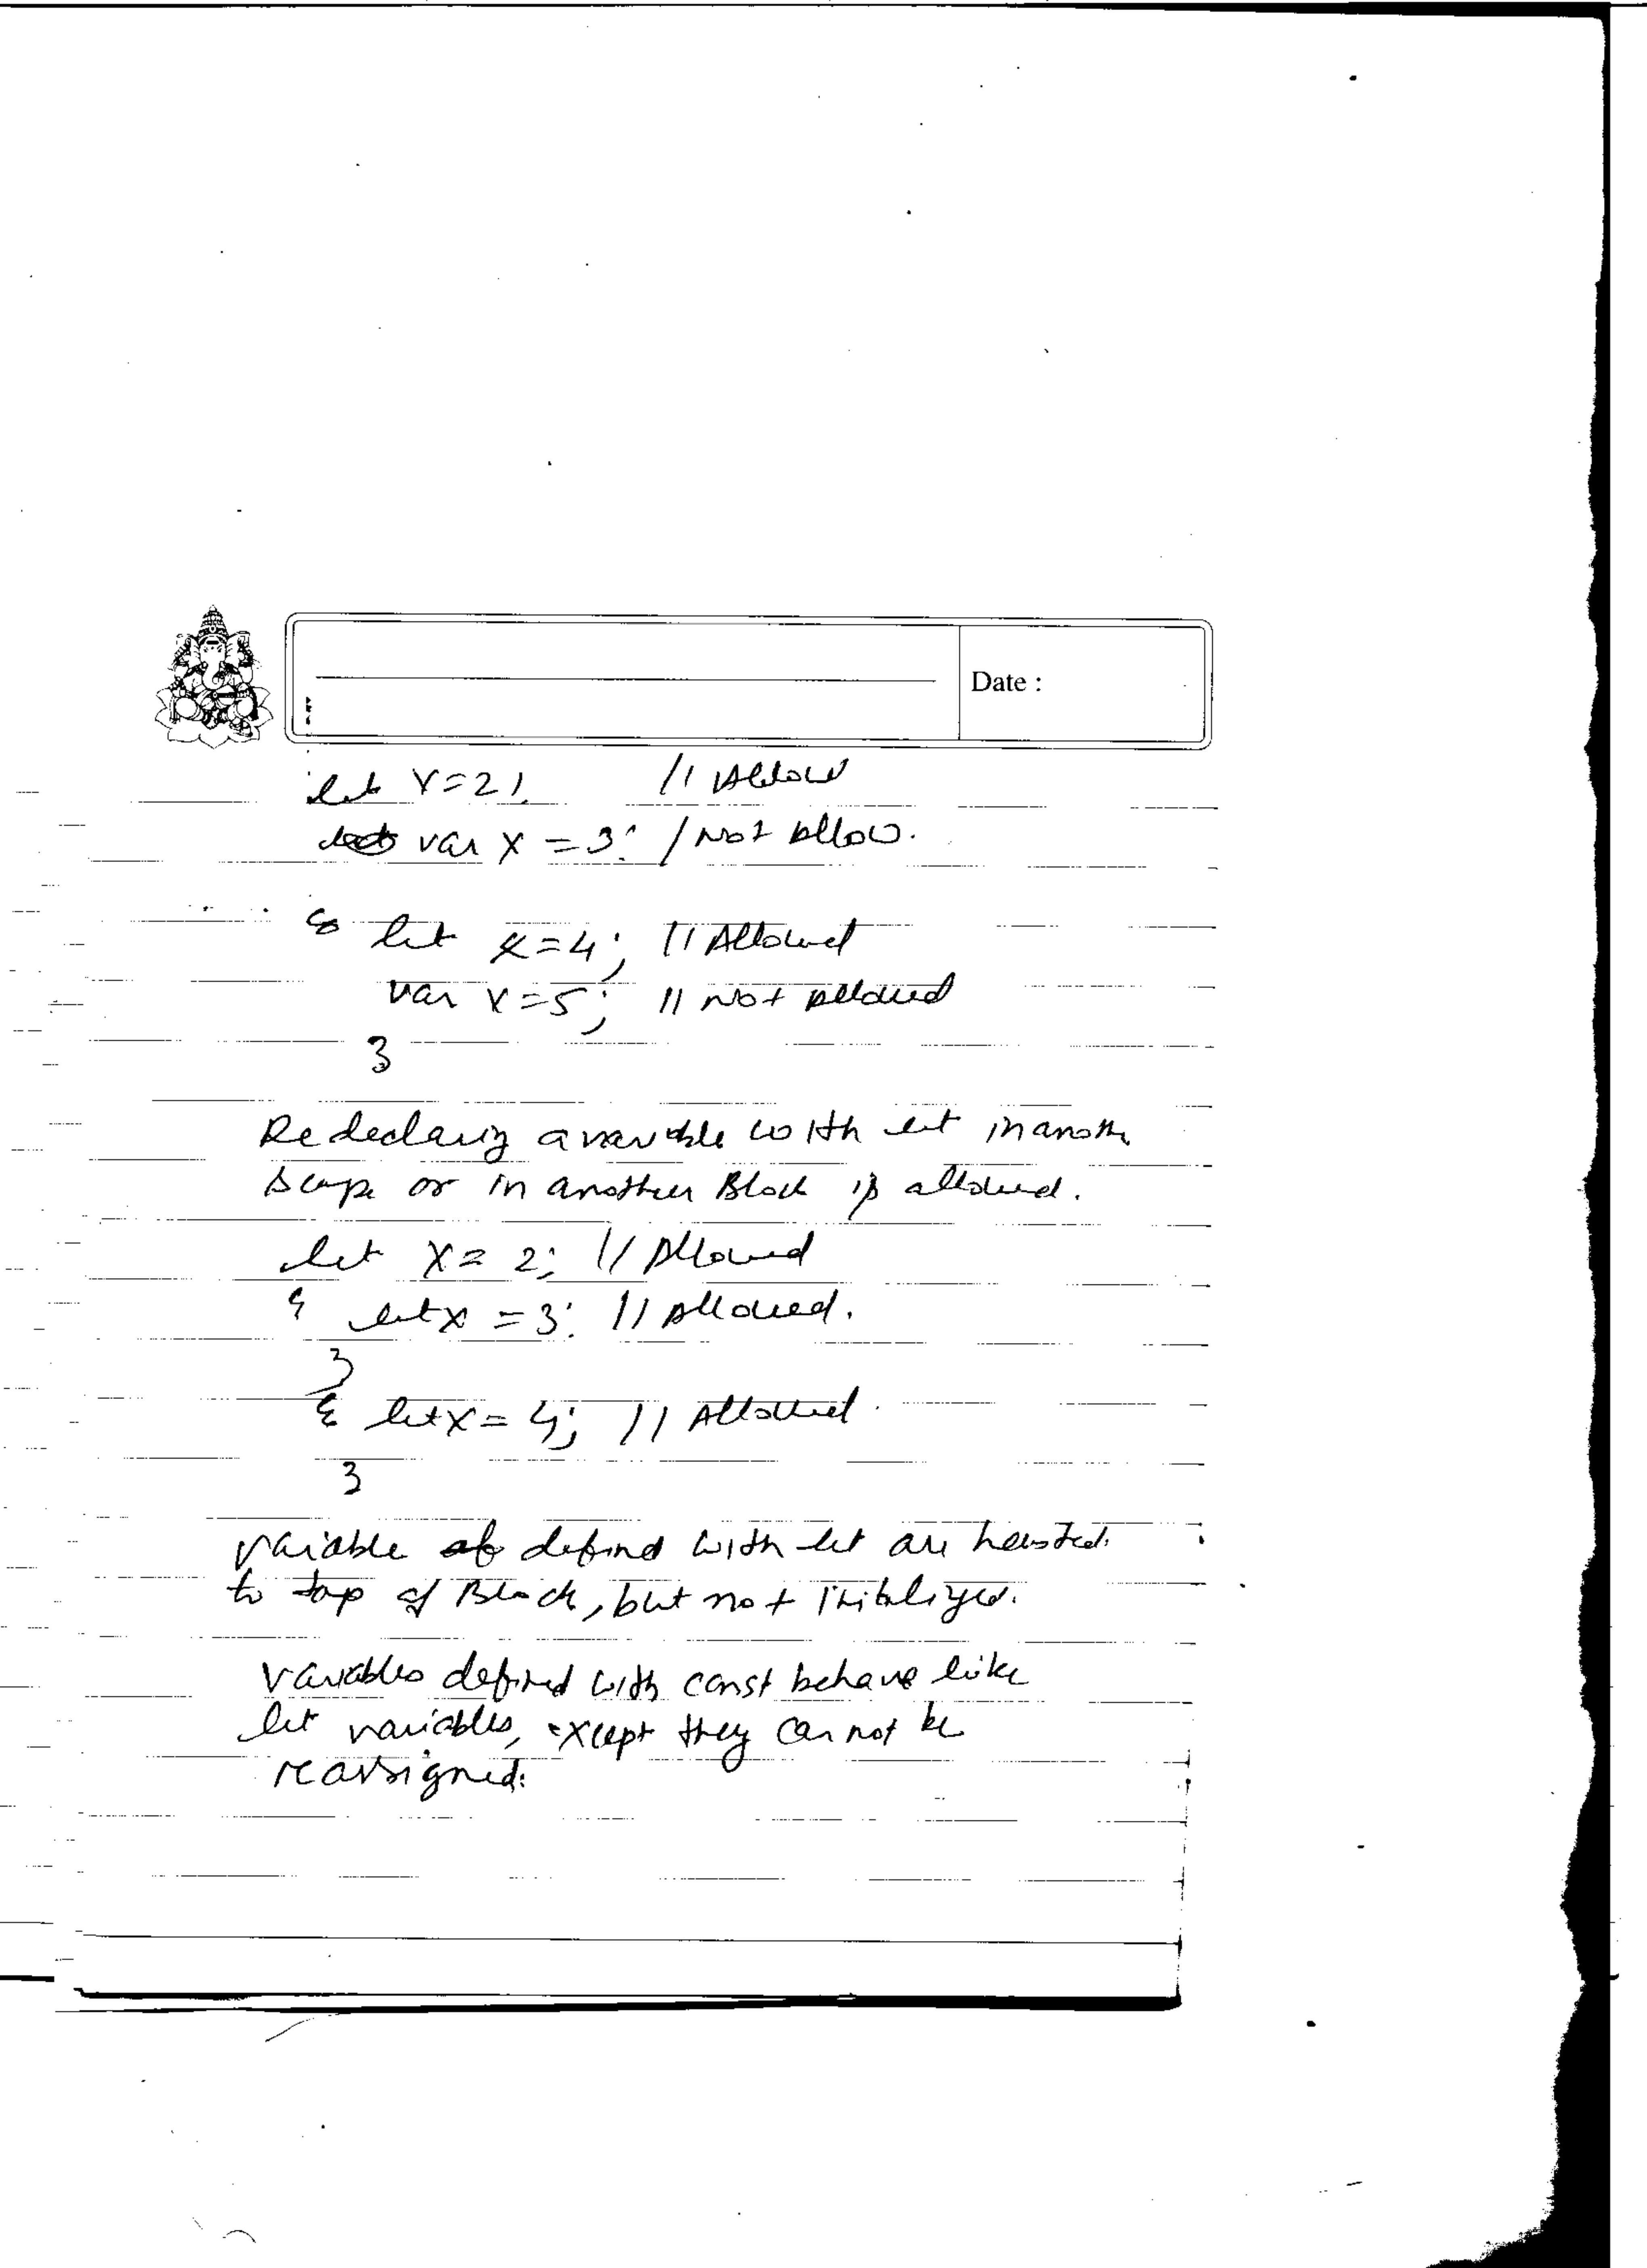 Date :
let x=2; // Allow
var x = 3; / Not Allow.
{ let x=4; // Allowed
var x=5; // Not Allowed
}
Redeclaring a variable with let in anothe
scope or in another Block is allowed.
let x = 2; // Allowed
{ let x = 3; // Allowed.
}
{ let x = 4; // Allowed.
}
variable defind with let are hoisted
to top of Block, but not initialized.
variables defined with const behave like
let variables, except they cannot be
reassigned.